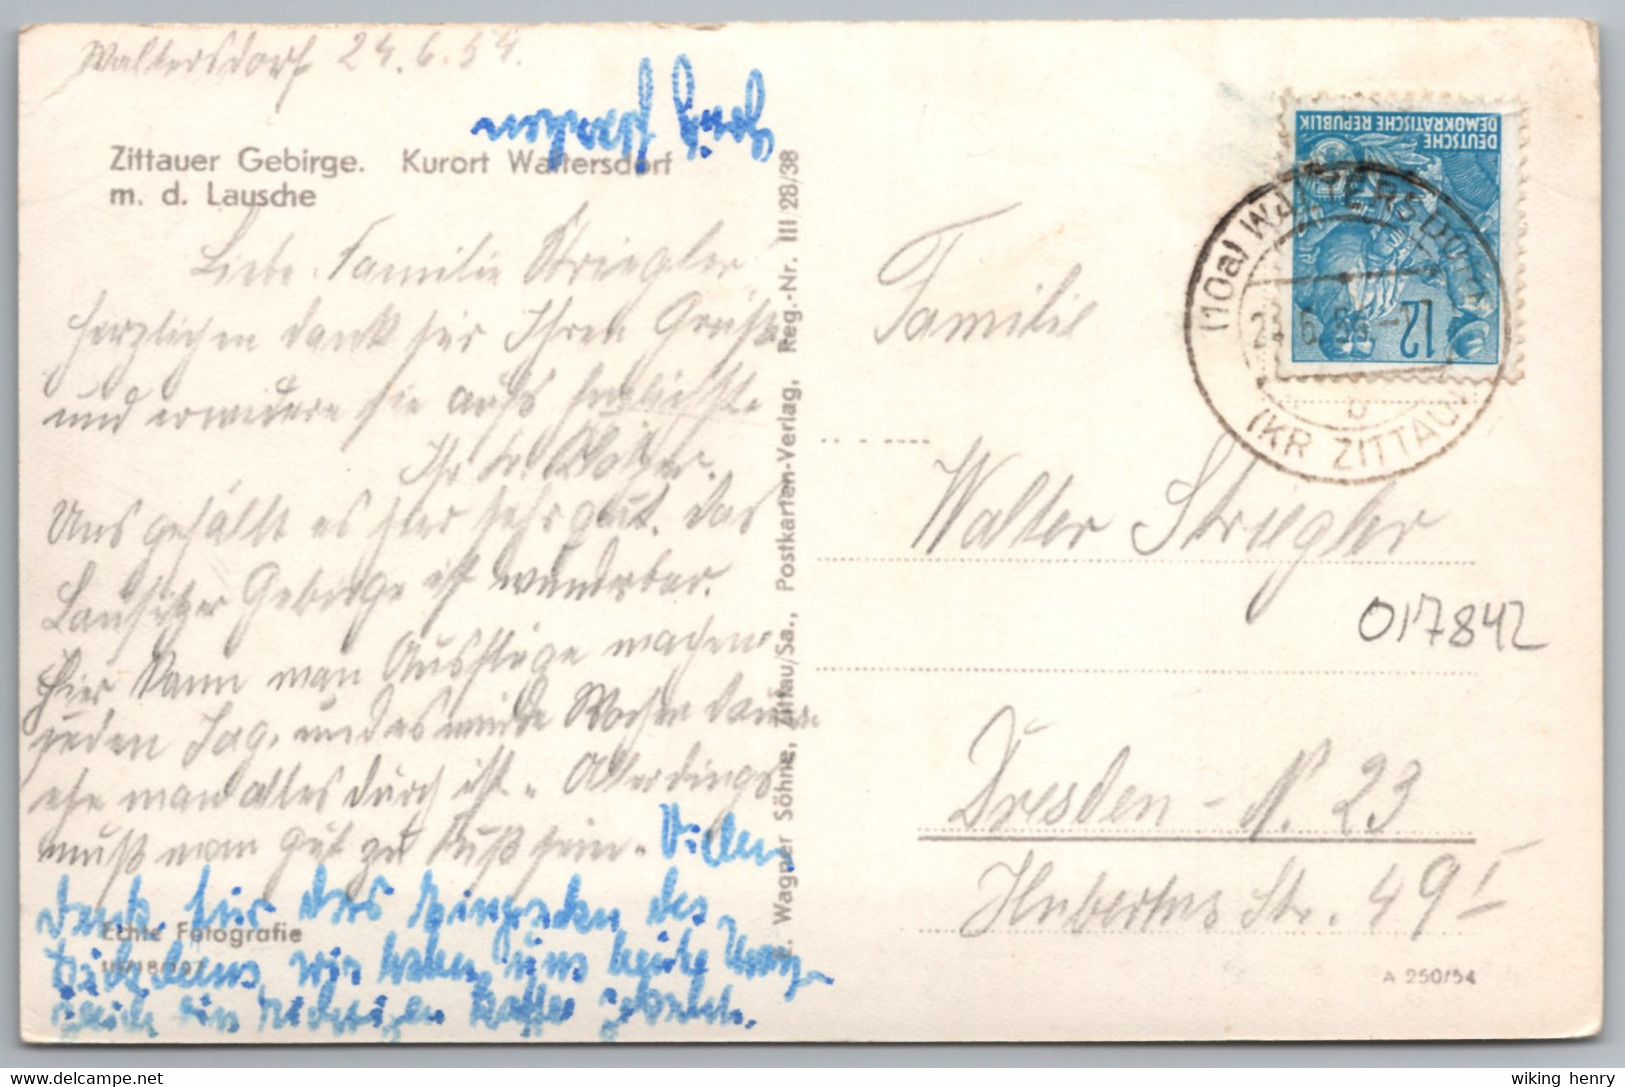 Waltersdorf 24.6.54.
Zittauer Gebirge. Kurort Waltersdorf
m. d. Lausche
Liebe Familie Striegler
herzlichen Dank für Ihren Gruß
und erwidere sie aufs herzlichste
Ihr
Uns gefällt es hier sehr gut. Das
Lausitzer Gebirge ist wunderbar.
Hier kann man Ausflüge machen
jeden Tag, und es würde Wochen dauern
ehe man alles durch ist. Allerdings
muß man gut zu Fuß sein. Vielen
Dank für das des
wir haben uns heute
ein richtigen Kaffee gekocht.
Echte Fotografie
E. Wagner Söhne, Zittau/Sa., Postkarten-Verlag, Reg.-Nr. III 28/38
DEUTSCHE
DEMOKRATISCHE REPUBLIK
12
(10a) WALTERSDORF
(KR ZITTAU)
b
Familie
Walter Striegler
017842
Dresden - N. 23
Hubertus Str. 49 I
A 250/54
wiking henry